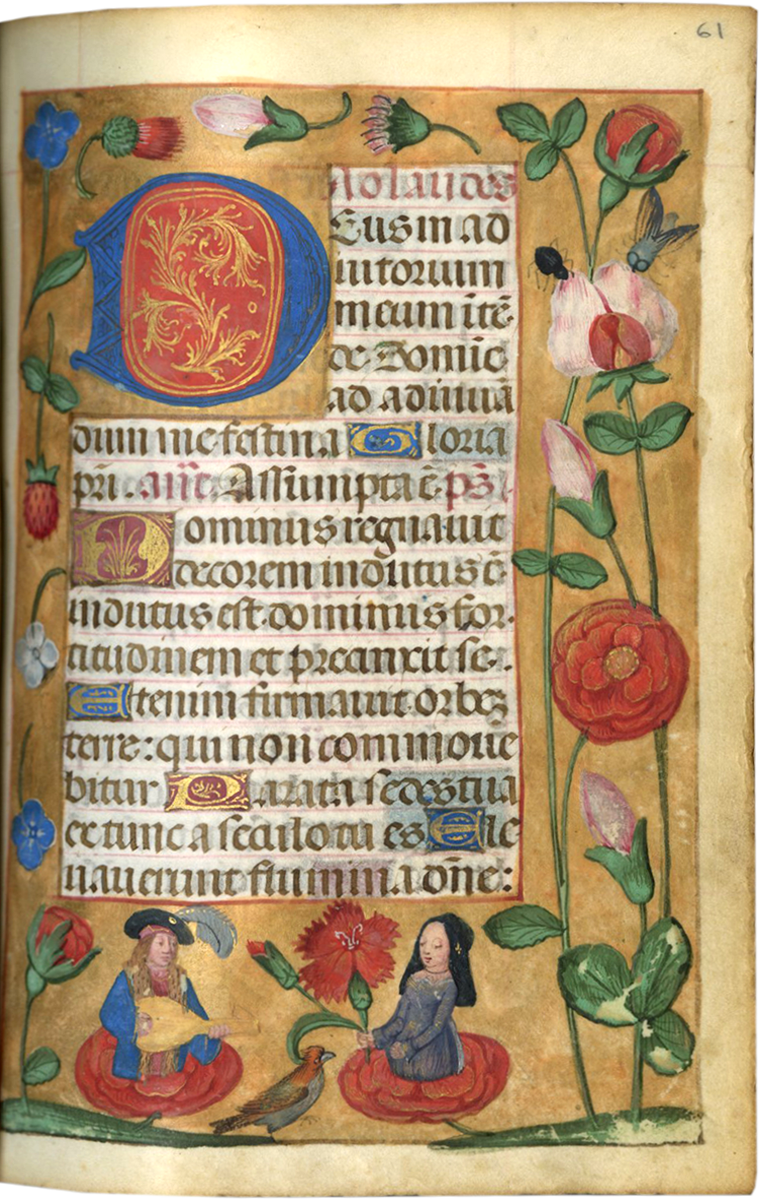 61
Ad laudes
Deus in ad
iutorium
meum intē
de Domine
ad adiuuā
dum me festina Gloria
pri. añe. Assumpta ē ps̄
Dominus regnauit
decorem indutus ē
indutus est dominus for
titudinem et precinxit se.
Etenim firmauit orbeꝫ
terre: qui non commoue
bitur Parata sedes tua
ex tunc a seculo tu es Ele
uauerunt flumina dñe: